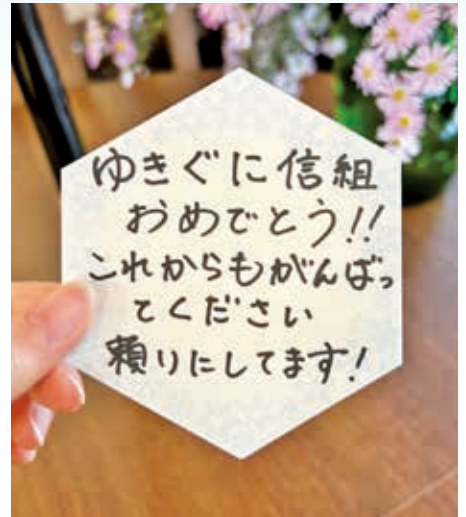 ゆきぐに信組
おめでとう!!
これからもがんばっ
てください
頼りにしてます!